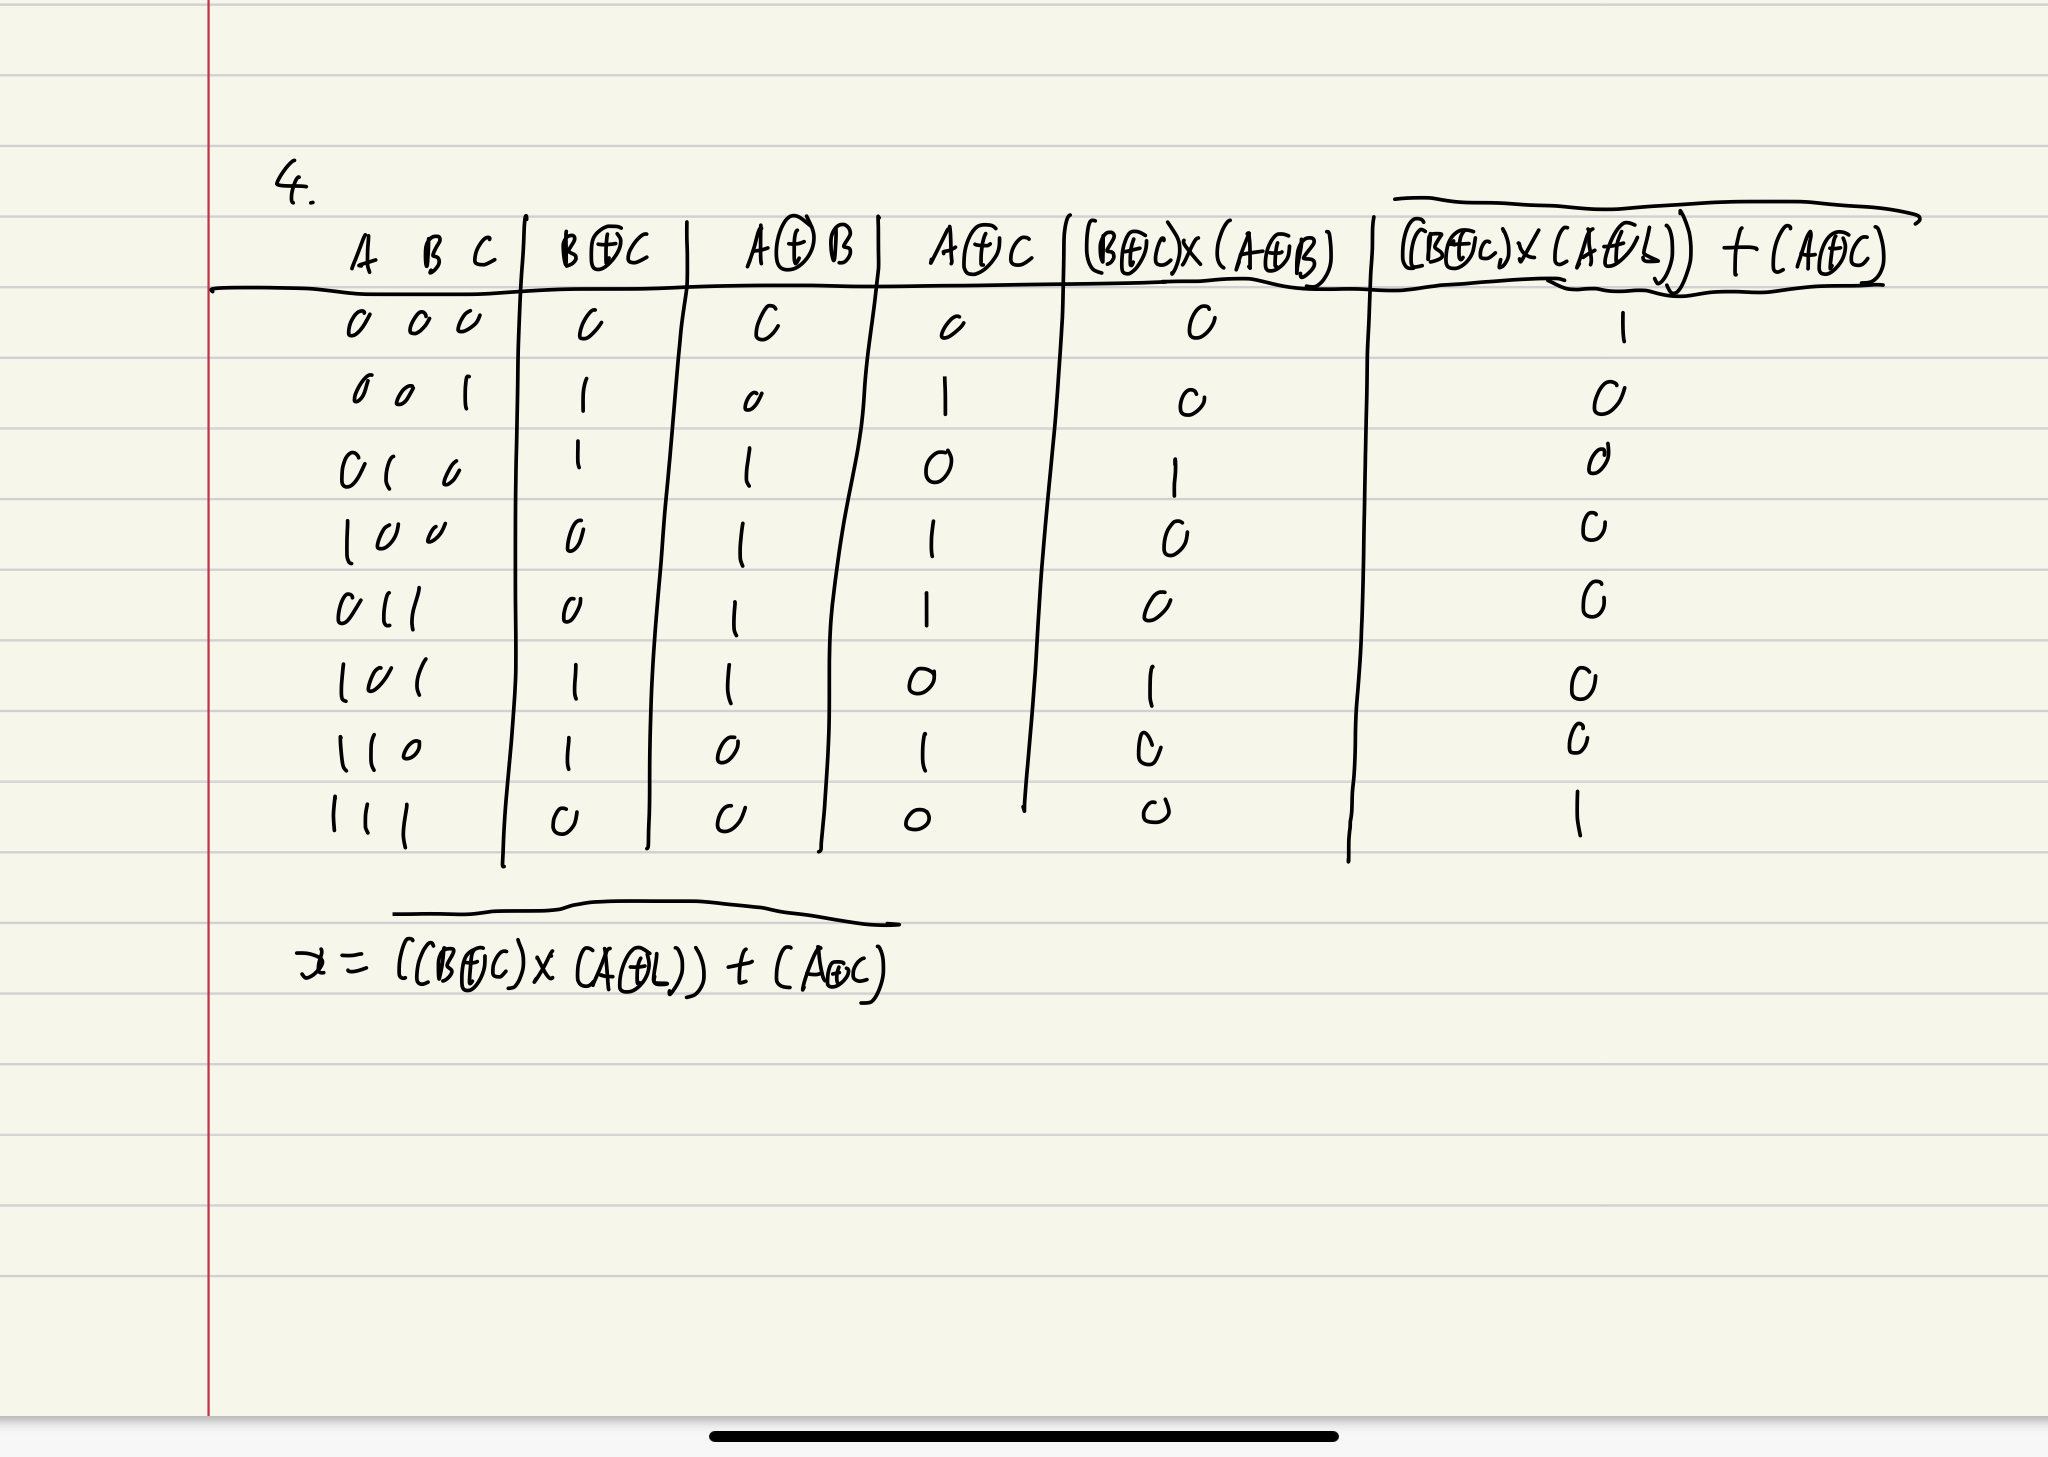 4.
A B C | B⊕C | A⊕B | A⊕C | (B⊕C)×(A⊕B) | ((B⊕C)×(A⊕L)) + (A⊕C)
0 0 0 | 0 | 0 | 0 | 0 | 1
0 0 1 | 1 | 0 | 1 | 0 | 0
0 1 0 | 1 | 1 | 0 | 1 | 0
1 0 0 | 0 | 1 | 1 | 0 | 0
0 1 1 | 0 | 1 | 1 | 0 | 0
1 0 1 | 1 | 1 | 0 | 1 | 0
1 1 0 | 1 | 0 | 1 | 0 | 0
1 1 1 | 0 | 0 | 0 | 0 | 1
x = ((B⊕C)×(A⊕L)) + (A⊕C)